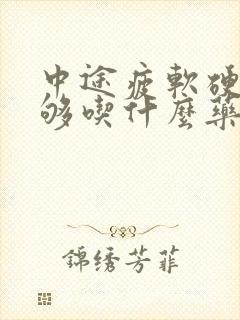 中途疲軟硬
够喫什麼藥
錦绣芳菲